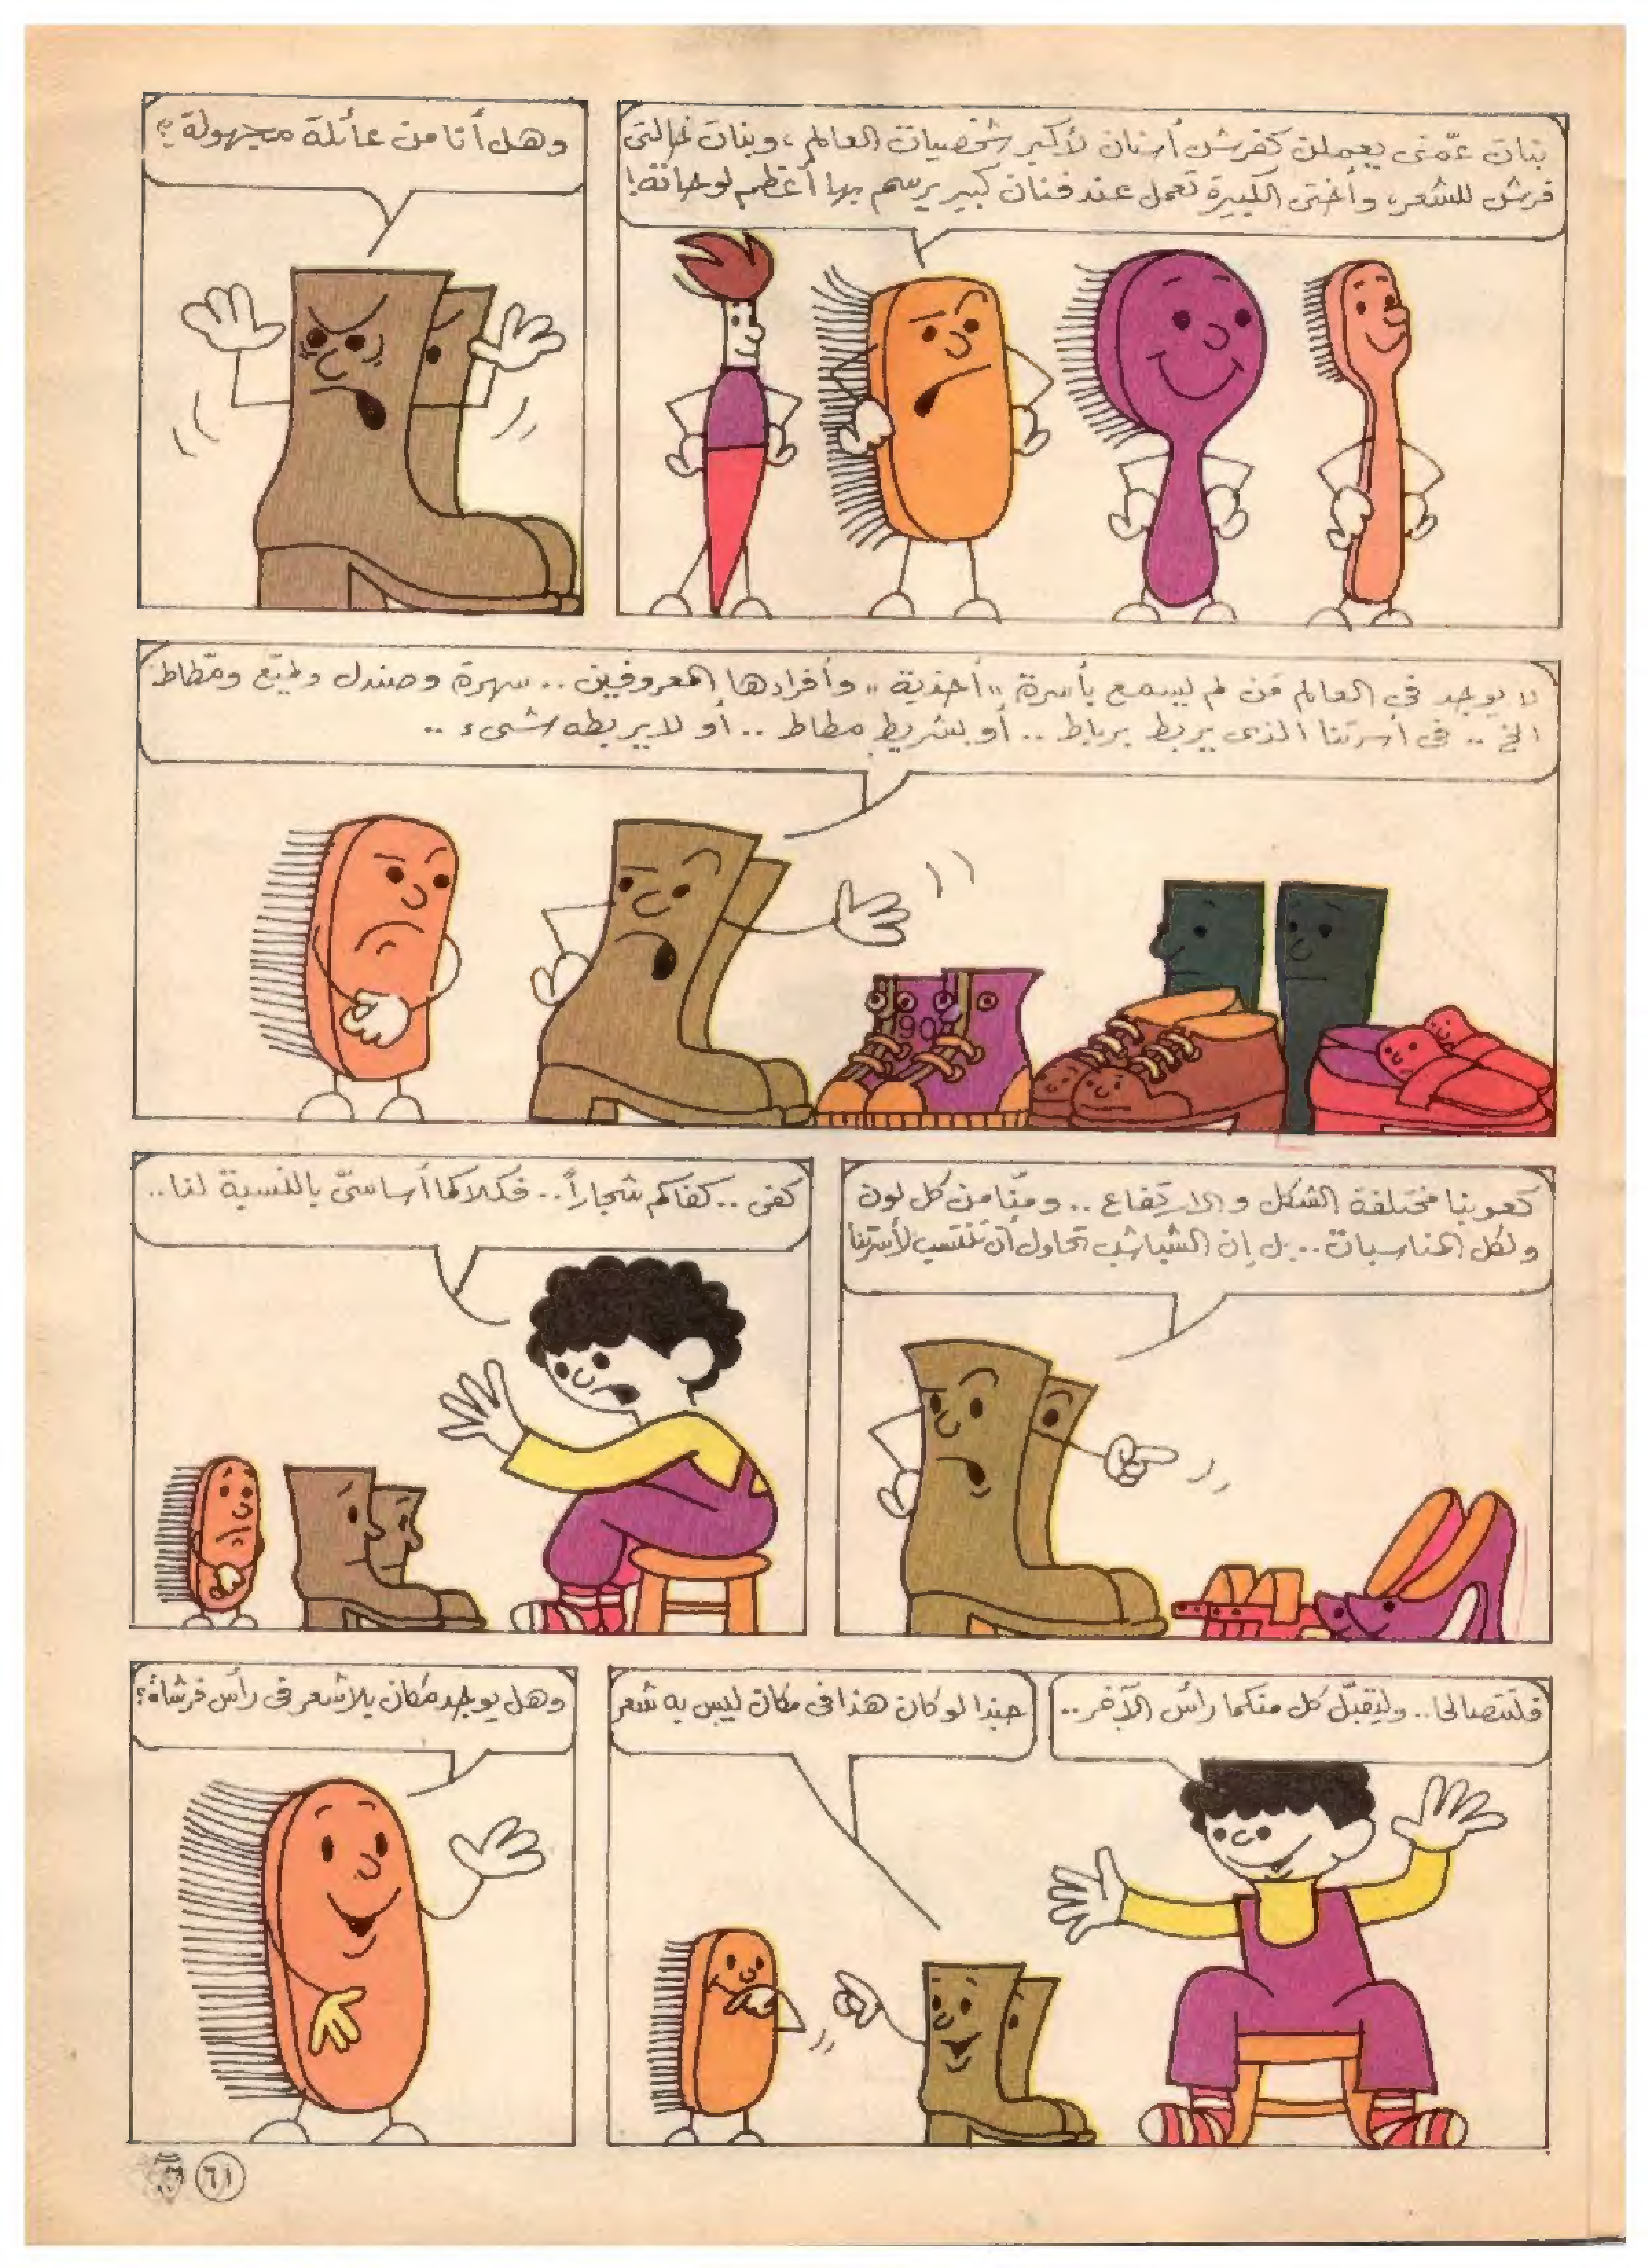 بنات عمّتى يعملن كفرش أسنان لأكبر شخصيات العالم ، وبنات خالتى
فرش للشعر، وأختى الكبيرة تعمل عند فنان كبير يرسم بها أعظم لوحاته!
وهل أنا من عائلة مجهولة ؟
لا يوجد فى العالم مَن لم يسمع بأسرة "أحذية" وأفرادها المعروفين .. سهرة وصندل ولميّع ومّطاط
الخ .. فى أسرتنا الذى يربط برباط .. أو بشريط مطاط .. أو لا يربطه شىء ..
كعوبنا مختلفة الشكل والارتفاع .. ومنّا من كل لون
ولكل المناسبات .. بل إن الشباشب تحاول أن تنتسب لأسرتنا
كفى .. كفاكم شجاراً .. فكلاكما أساسىّ بالنسبة لنا ..
فلتتصالحا .. وليُقبّل كل منكما رأس الآخر ..
حبذا لو كان هذا فى مكان ليس به شعر
وهل يوجد مكان بلا شعر فى رأس فرشاة ؟
٦١
90